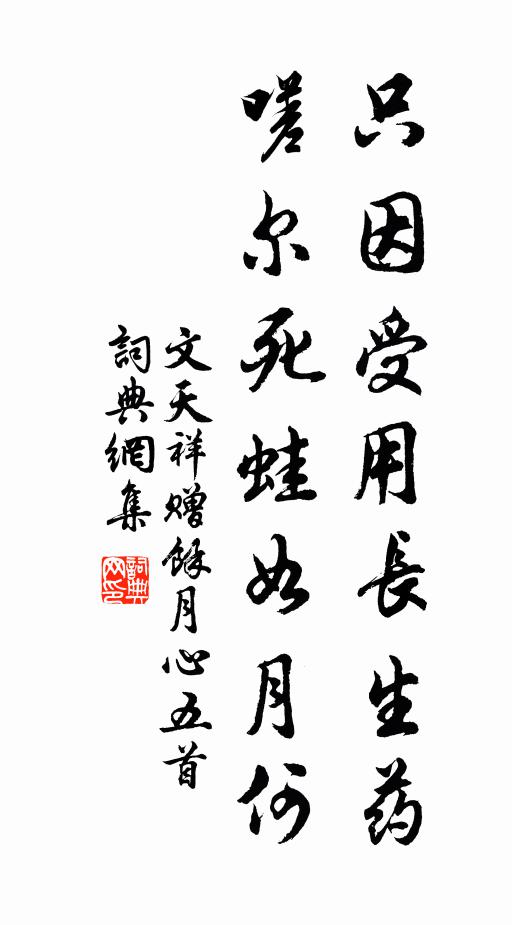 只因受用長生药
嗟尔死蛙如月何
文天祥赠餘月心五首
詞典網集
詞典
网印